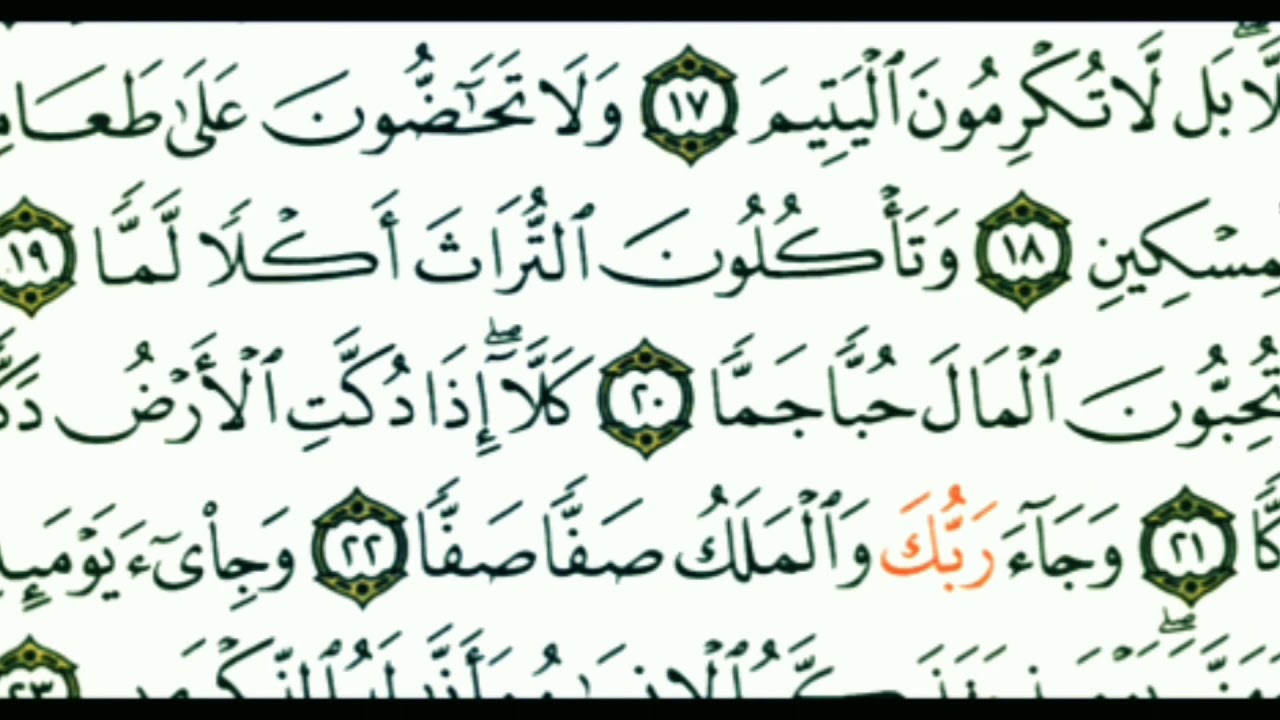 لَّا بَل لَّا تُكْرِمُونَ ٱلْيَتِيمَ ١٧ وَلَا تَحَٰٓضُّونَ عَلَىٰ طَعَامِ
ٱلْمِسْكِينِ ١٨ وَتَأْكُلُونَ ٱلتُّرَاثَ أَكْلًا لَّمًّا ١٩
تُحِبُّونَ ٱلْمَالَ حُبًّا جَمًّا ٢٠ كَلَّآ ۖ إِذَا دُكَّتِ ٱلْأَرْضُ دَكًّ
كًّا ٢١ وَجَآءَ رَبُّكَ وَٱلْمَلَكُ صَفًّا صَفًّا ٢٢ وَجِا۟ىٓءَ يَوْمَئِ
ٱلْإِنسَٰنُ وَأَنَّىٰ لَهُ ٱلذِّكْرَىٰ ٢٣